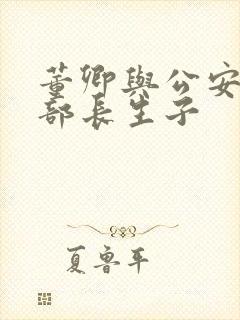 董卿與公安
部長生子
夏魯平